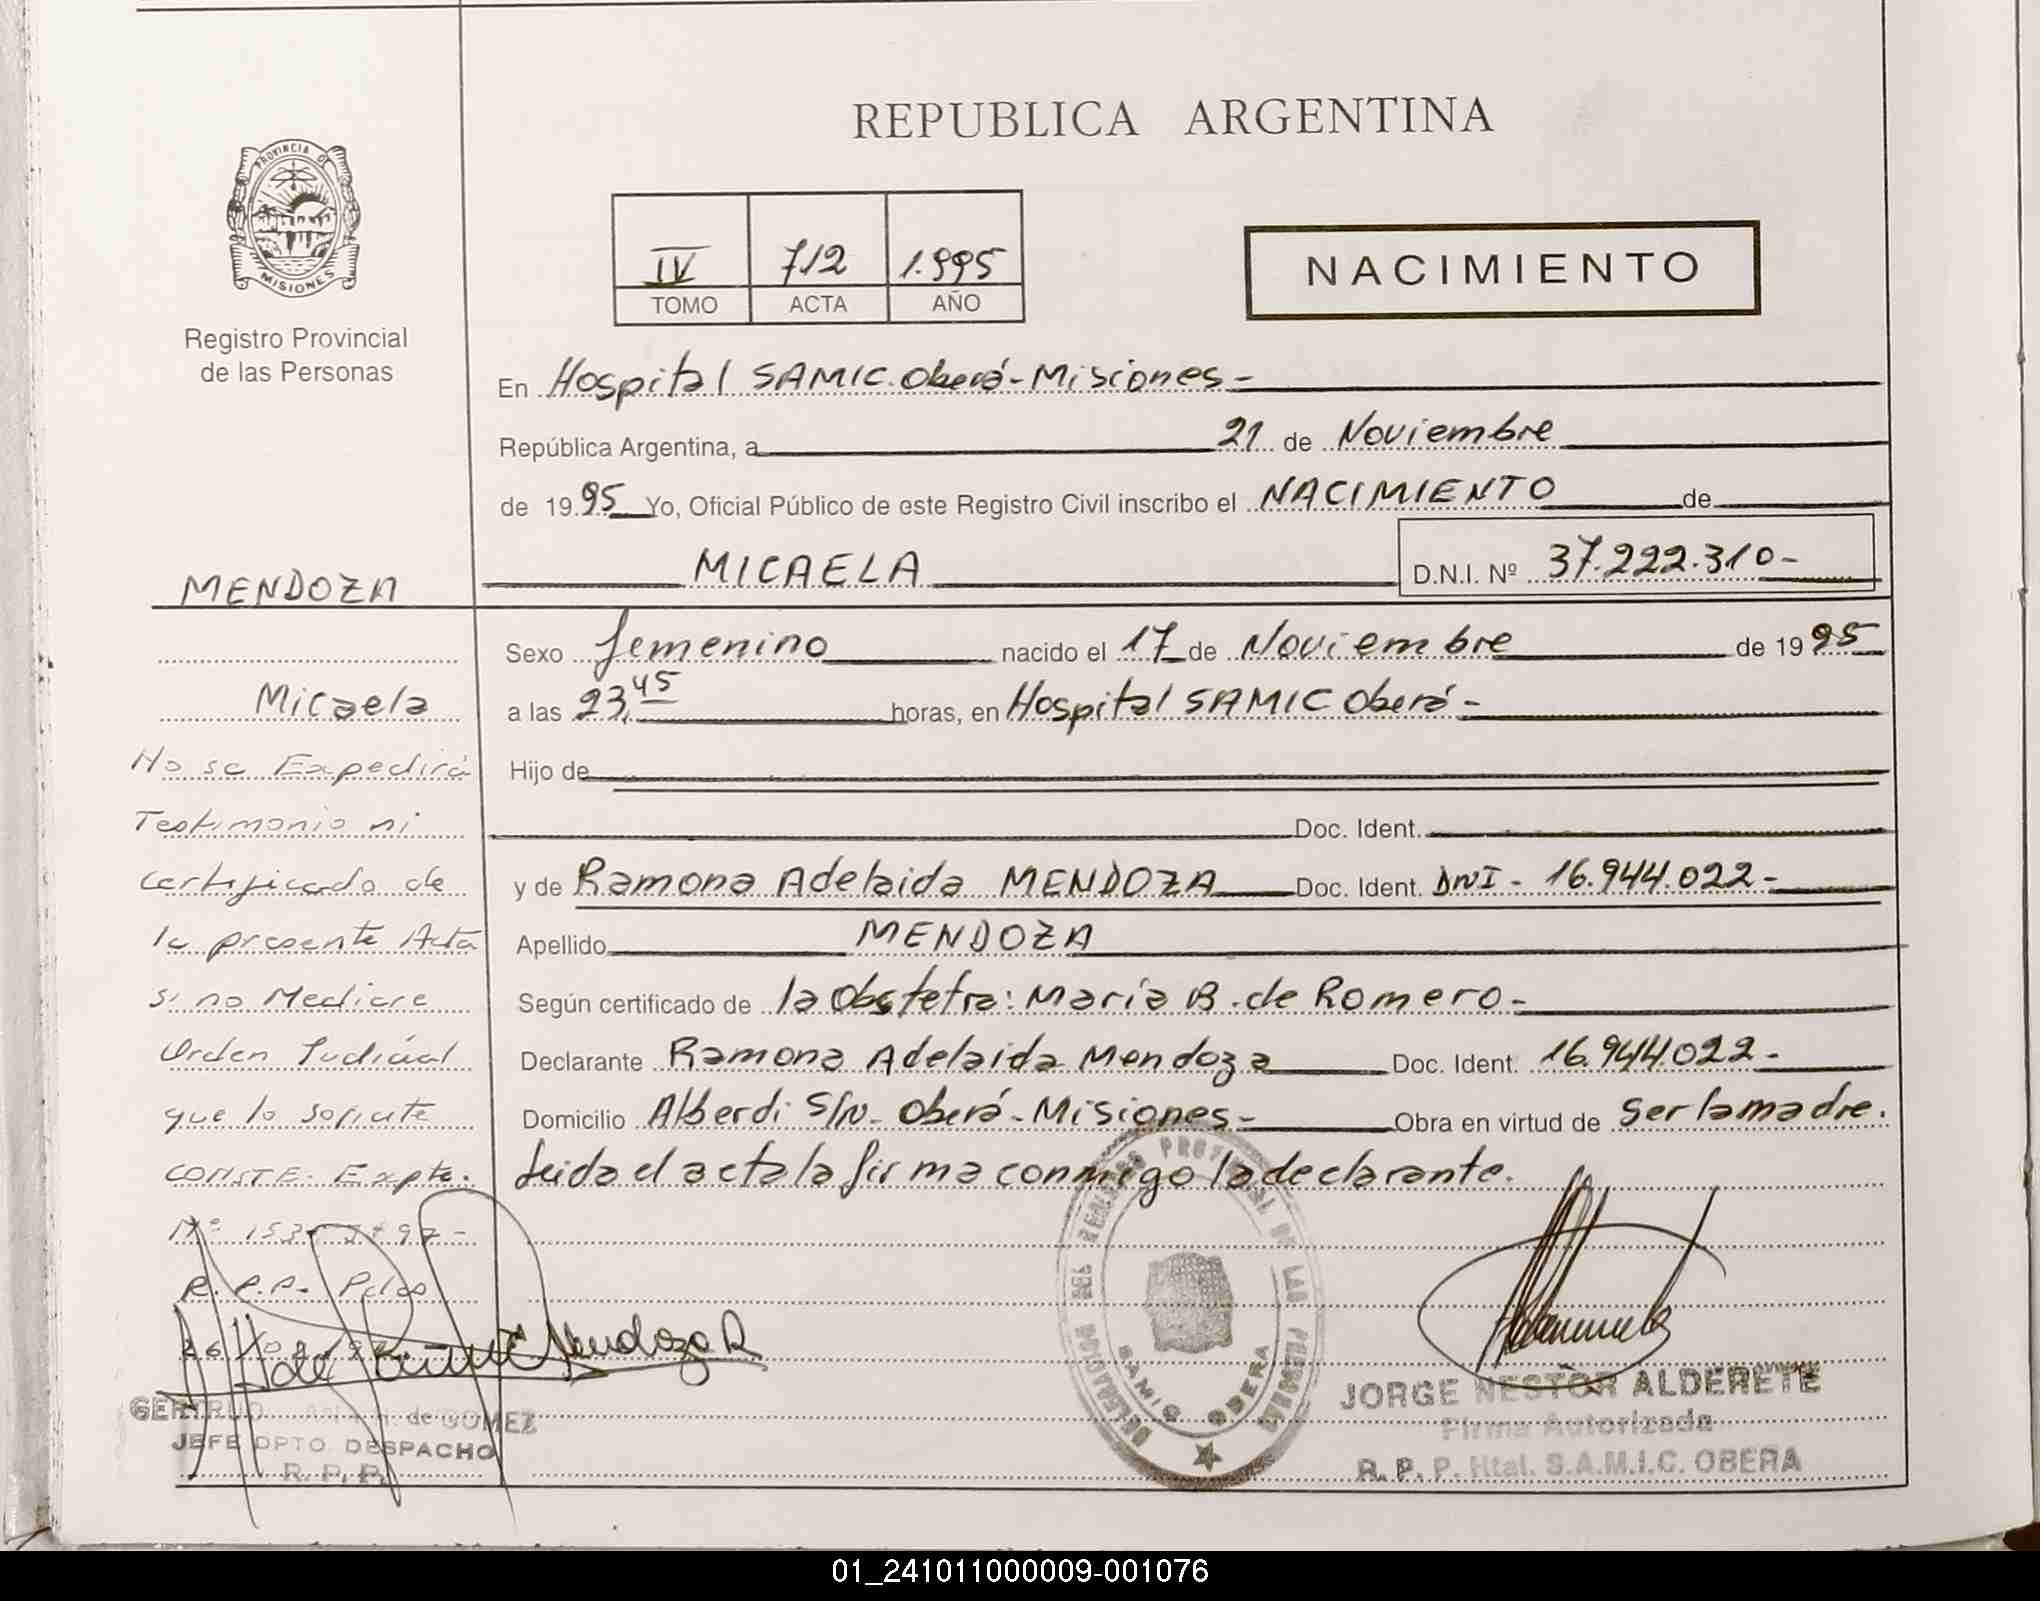 REPUBLICA ARGENTINA
PROVINCIA DE
MISIONES
Registro Provincial
de las Personas
IV 712 1.995
TOMO ACTA AÑO
NACIMIENTO
En Hospital SAMIC. Oberá - Misiones -
República Argentina, a 21 de Noviembre
de 1995 Yo, Oficial Público de este Registro Civil inscribo el NACIMIENTO de
MICAELA D.N.I. Nº 37.222.310-
MENDOZA
Micaela
No se Expedirá
Testimonio ni
certificado de
la presente Acta
si no Mediare
Orden Judicial
que lo solicite
CONSTE. Expte.
R.P.P. Pdas
GERTRUD de GOMEZ
JEFE DPTO DESPACHO
R. P. P.
Sexo femenino nacido el 17 de Noviembre de 1995
a las 23,45 horas, en Hospital SAMIC Oberá -
Hijo de
Doc. Ident.
y de Ramona Adelaida MENDOZA Doc. Ident. DNI - 16.944.022-
Apellido MENDOZA
Según certificado de la Obstetra: María B. de Romero-
Declarante Ramona Adelaida Mendoza Doc. Ident. 16.944.022-
Domicilio Alberdi S/N- Oberá - Misiones- Obra en virtud de Ser la madre.
Leida el acta la firma conmigo la declarante.
Mendoza R
DELEGACION DEL REGISTRO PROVINCIAL DE LAS PERSONAS
SAMIC OBERA
JORGE NESTOR ALDERETE
Firma Autorizada
R. P. P. Htal. S.A.M.I.C. OBERA
01_241011000009-001076